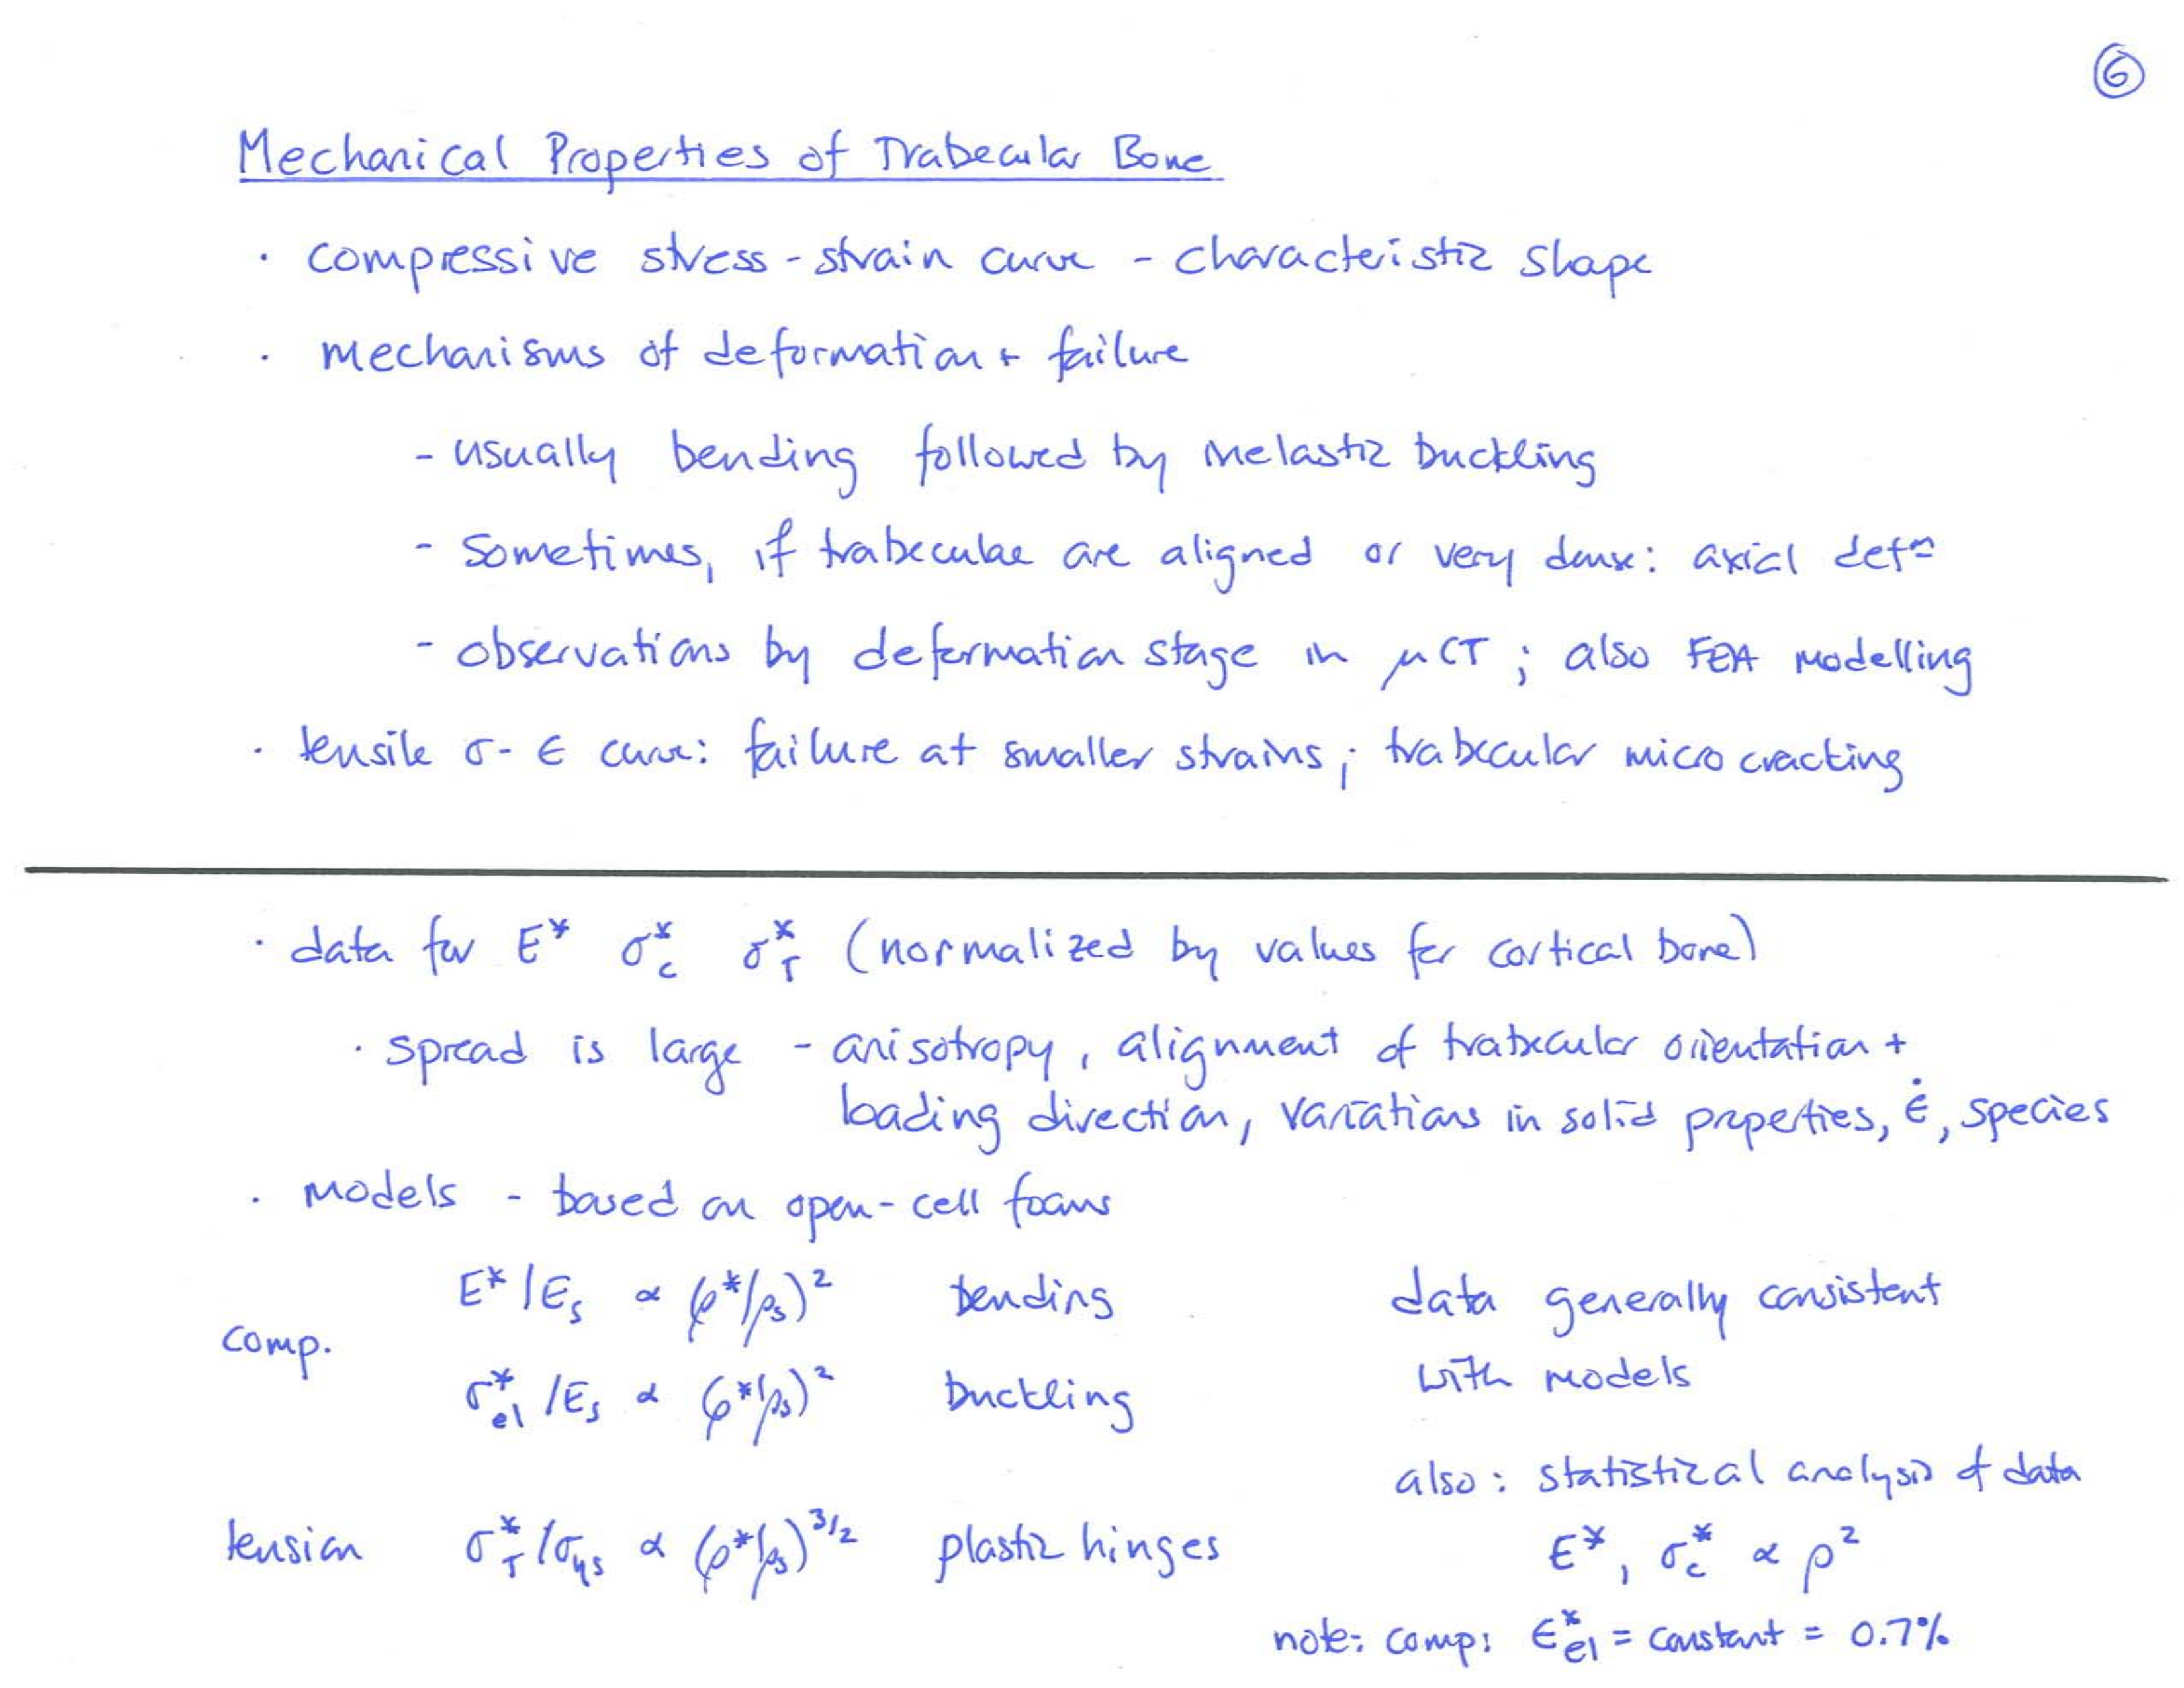 6
Mechanical Properties of Trabecular Bone
· compressive stress-strain curve - characteristic shape
· mechanisms of deformation + failure
- usually bending followed by inelastic buckling
- sometimes, if trabeculae are aligned or very dense: axial defⁿ
- observations by deformation stage in μCT; also FEA modelling
· tensile σ-ε curve: failure at smaller strains; trabecular micro cracking
· data for E* σ*c σ*T (normalized by values for cortical bone)
· spread is large - anisotropy, alignment of trabecular orientation +
loading direction, variations in solid properties, ε̇, species
· models - based on open-cell foams
comp.
E*/Es ∝ (ρ*/ρs)² bending
σ*el/Es ∝ (ρ*/ρs)² buckling
data generally consistent
with models
tension σ*T/σys ∝ (ρ*/ρs)^3/2 plastic hinges
also: statistical analysis of data
E*, σ*c ∝ ρ²
note: comp: ε*el = constant = 0.7%